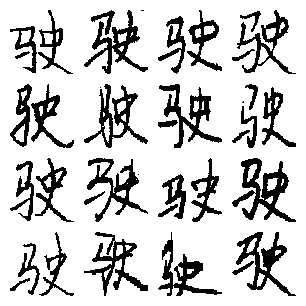 驶驶驶驶
驶驶驶驶
驶驶驶驶
驶驶驶驶